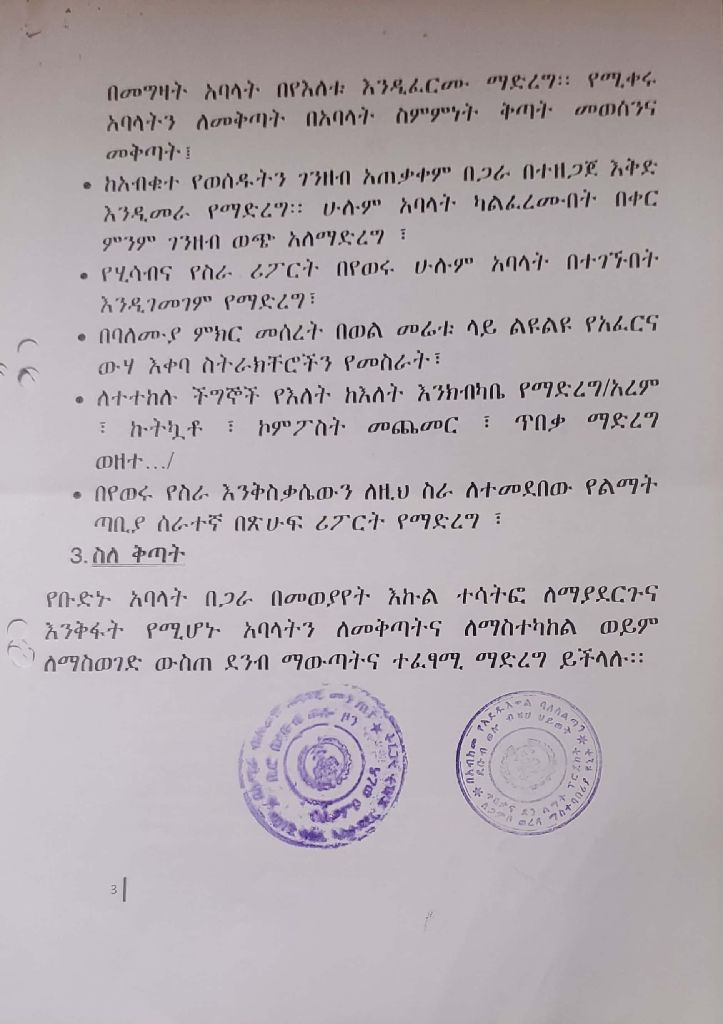 በመግዛት አባላት በየእለቱ እንዲፈርሙ ማድረግ። የሚቀሩ
አባላትን ለመቅጣት በአባላት ስምምነት ቅጣት መወሰንና
መቅጣት፤
• ከአብቁተ የወሰዱትን ገንዘብ አጠቃቀም በጋራ በተዘጋጀ እቅድ
እንዲመራ የማድረግ። ሁሉም አባላት ካልፈረሙበት በቀር
ምንም ገንዘብ ወጭ አለማድረግ ፣
• የሂሳብና የስራ ሪፖርት በየወሩ ሁሉም አባላት በተገኙበት
እንዲገመገም የማድረግ፣
• በባለሙያ ምክር መሰረት በወል መሬቱ ላይ ልዩልዩ የአፈርና
ውሃ እቀባ ስትራክቸሮችን የመስራት፣
• ለተተከሉ ችግኞች የእለት ከእለት እንክብካቤ የማድረግ/አረም
፣ ኩትኳቶ ፣ ኮምፖስት መጨመር ፣ ጥበቃ ማድረግ
ወዘተ.../
• በየወሩ የስራ እንቅስቃሴውን ለዚህ ስራ ለተመደበው የልማት
ጣቢያ ሰራተኛ በጽሁፍ ሪፖርት የማድረግ ፣
3. ስለ ቅጣት
የቡድኑ አባላት በጋራ በመወያየት እኩል ተሳትፎ ለማያደርጉና
እንቅፋት የሚሆኑ አባላትን ለመቅጣትና ለማስተካከል ወይም
ለማስወገድ ውስጠ ደንብ ማውጣትና ተፈፃሚ ማድረግ ይችላሉ።
3